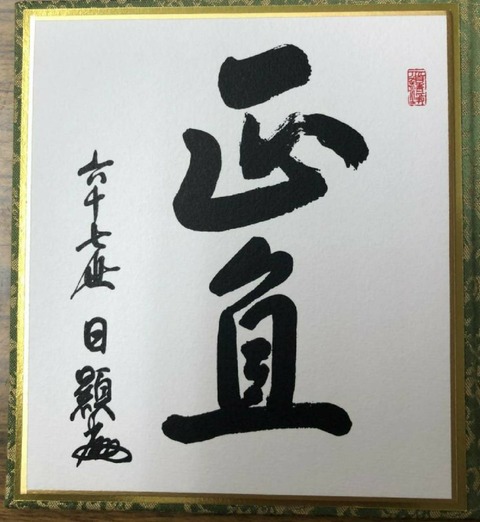 正直
六十七世 日顕